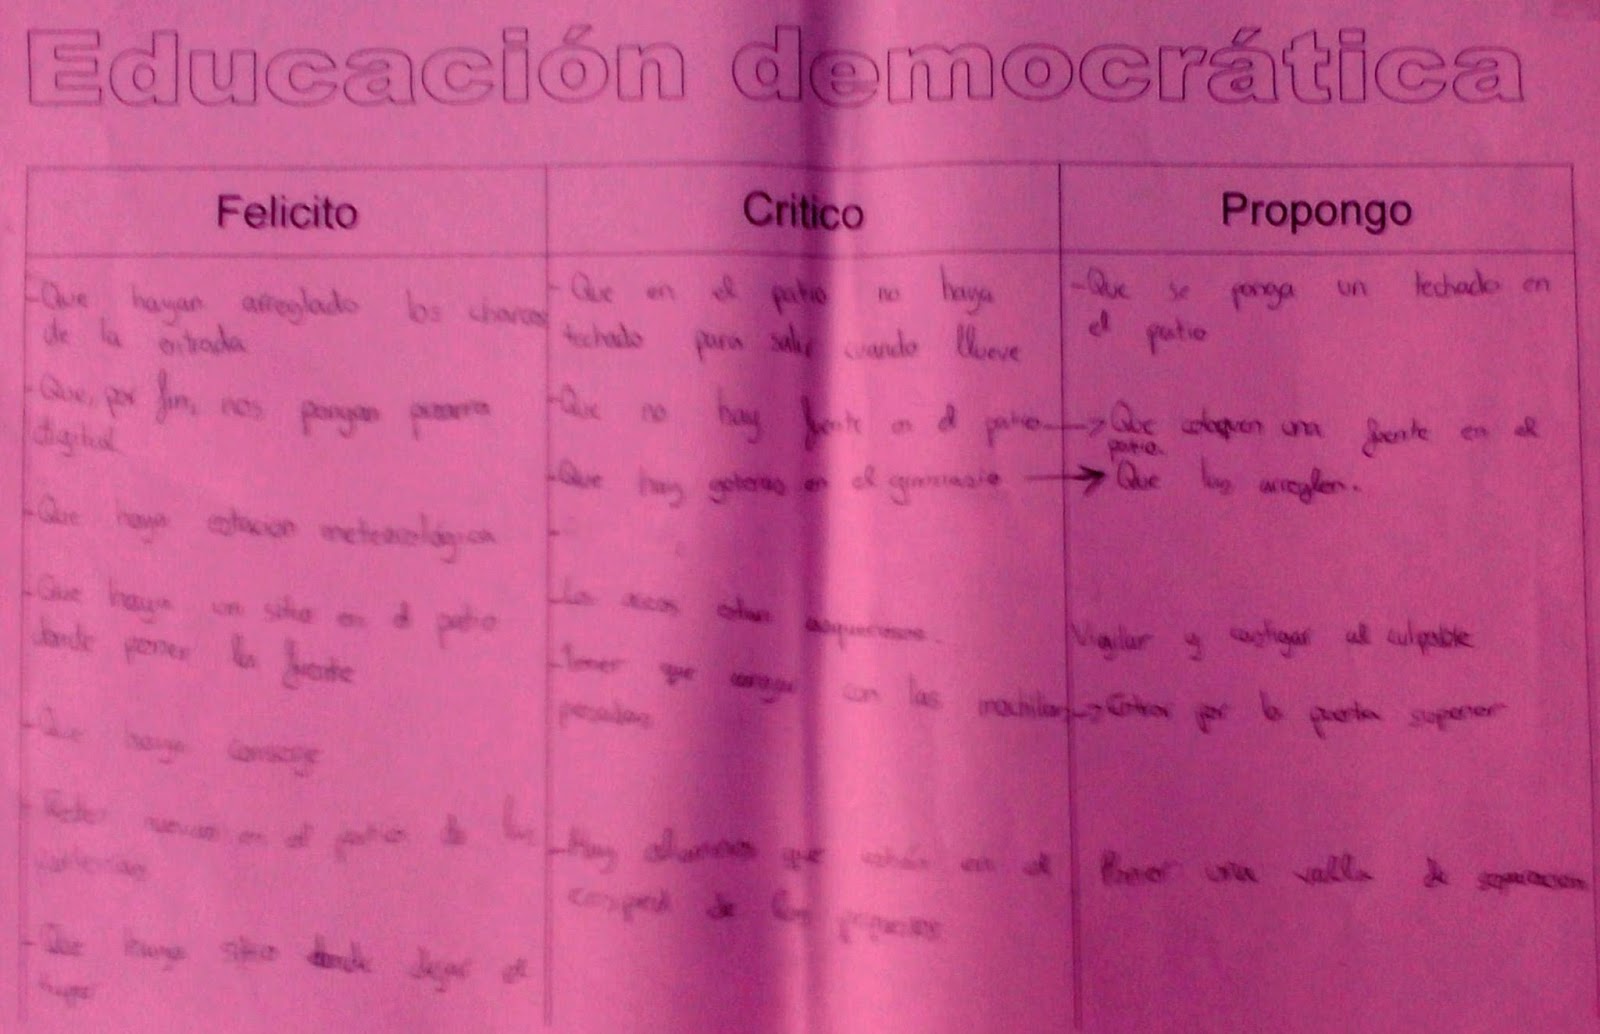 Educación democrática
Felicito
- Que hayan arreglado los charcos
de la entrada
- Que, por fin, nos pongan pizarra
digital
- Que haya estacion meteorológica
- Que haya un sitio en el patio
donde poner la fuente
- Que haya conserje
- en el patio de
- Que sitio donde dejar el
Critico
- Que en el patio no haya
techado para salir cuando llueve
- Que no hay fuente en el patio →
- Que hay goteras en el gimnasio →
-
- estan
- Tener que con las mochilas →
pesadas
- Hay alumnos que están en el
cesped de los pequeños
Propongo
- Que se ponga un techado en
el patio
Que coloquen una fuente en el
patio.
Que las arreglen.
Vigilar y castigar al culpable
Entrar por la puerta superior
Poner una valla de separacion